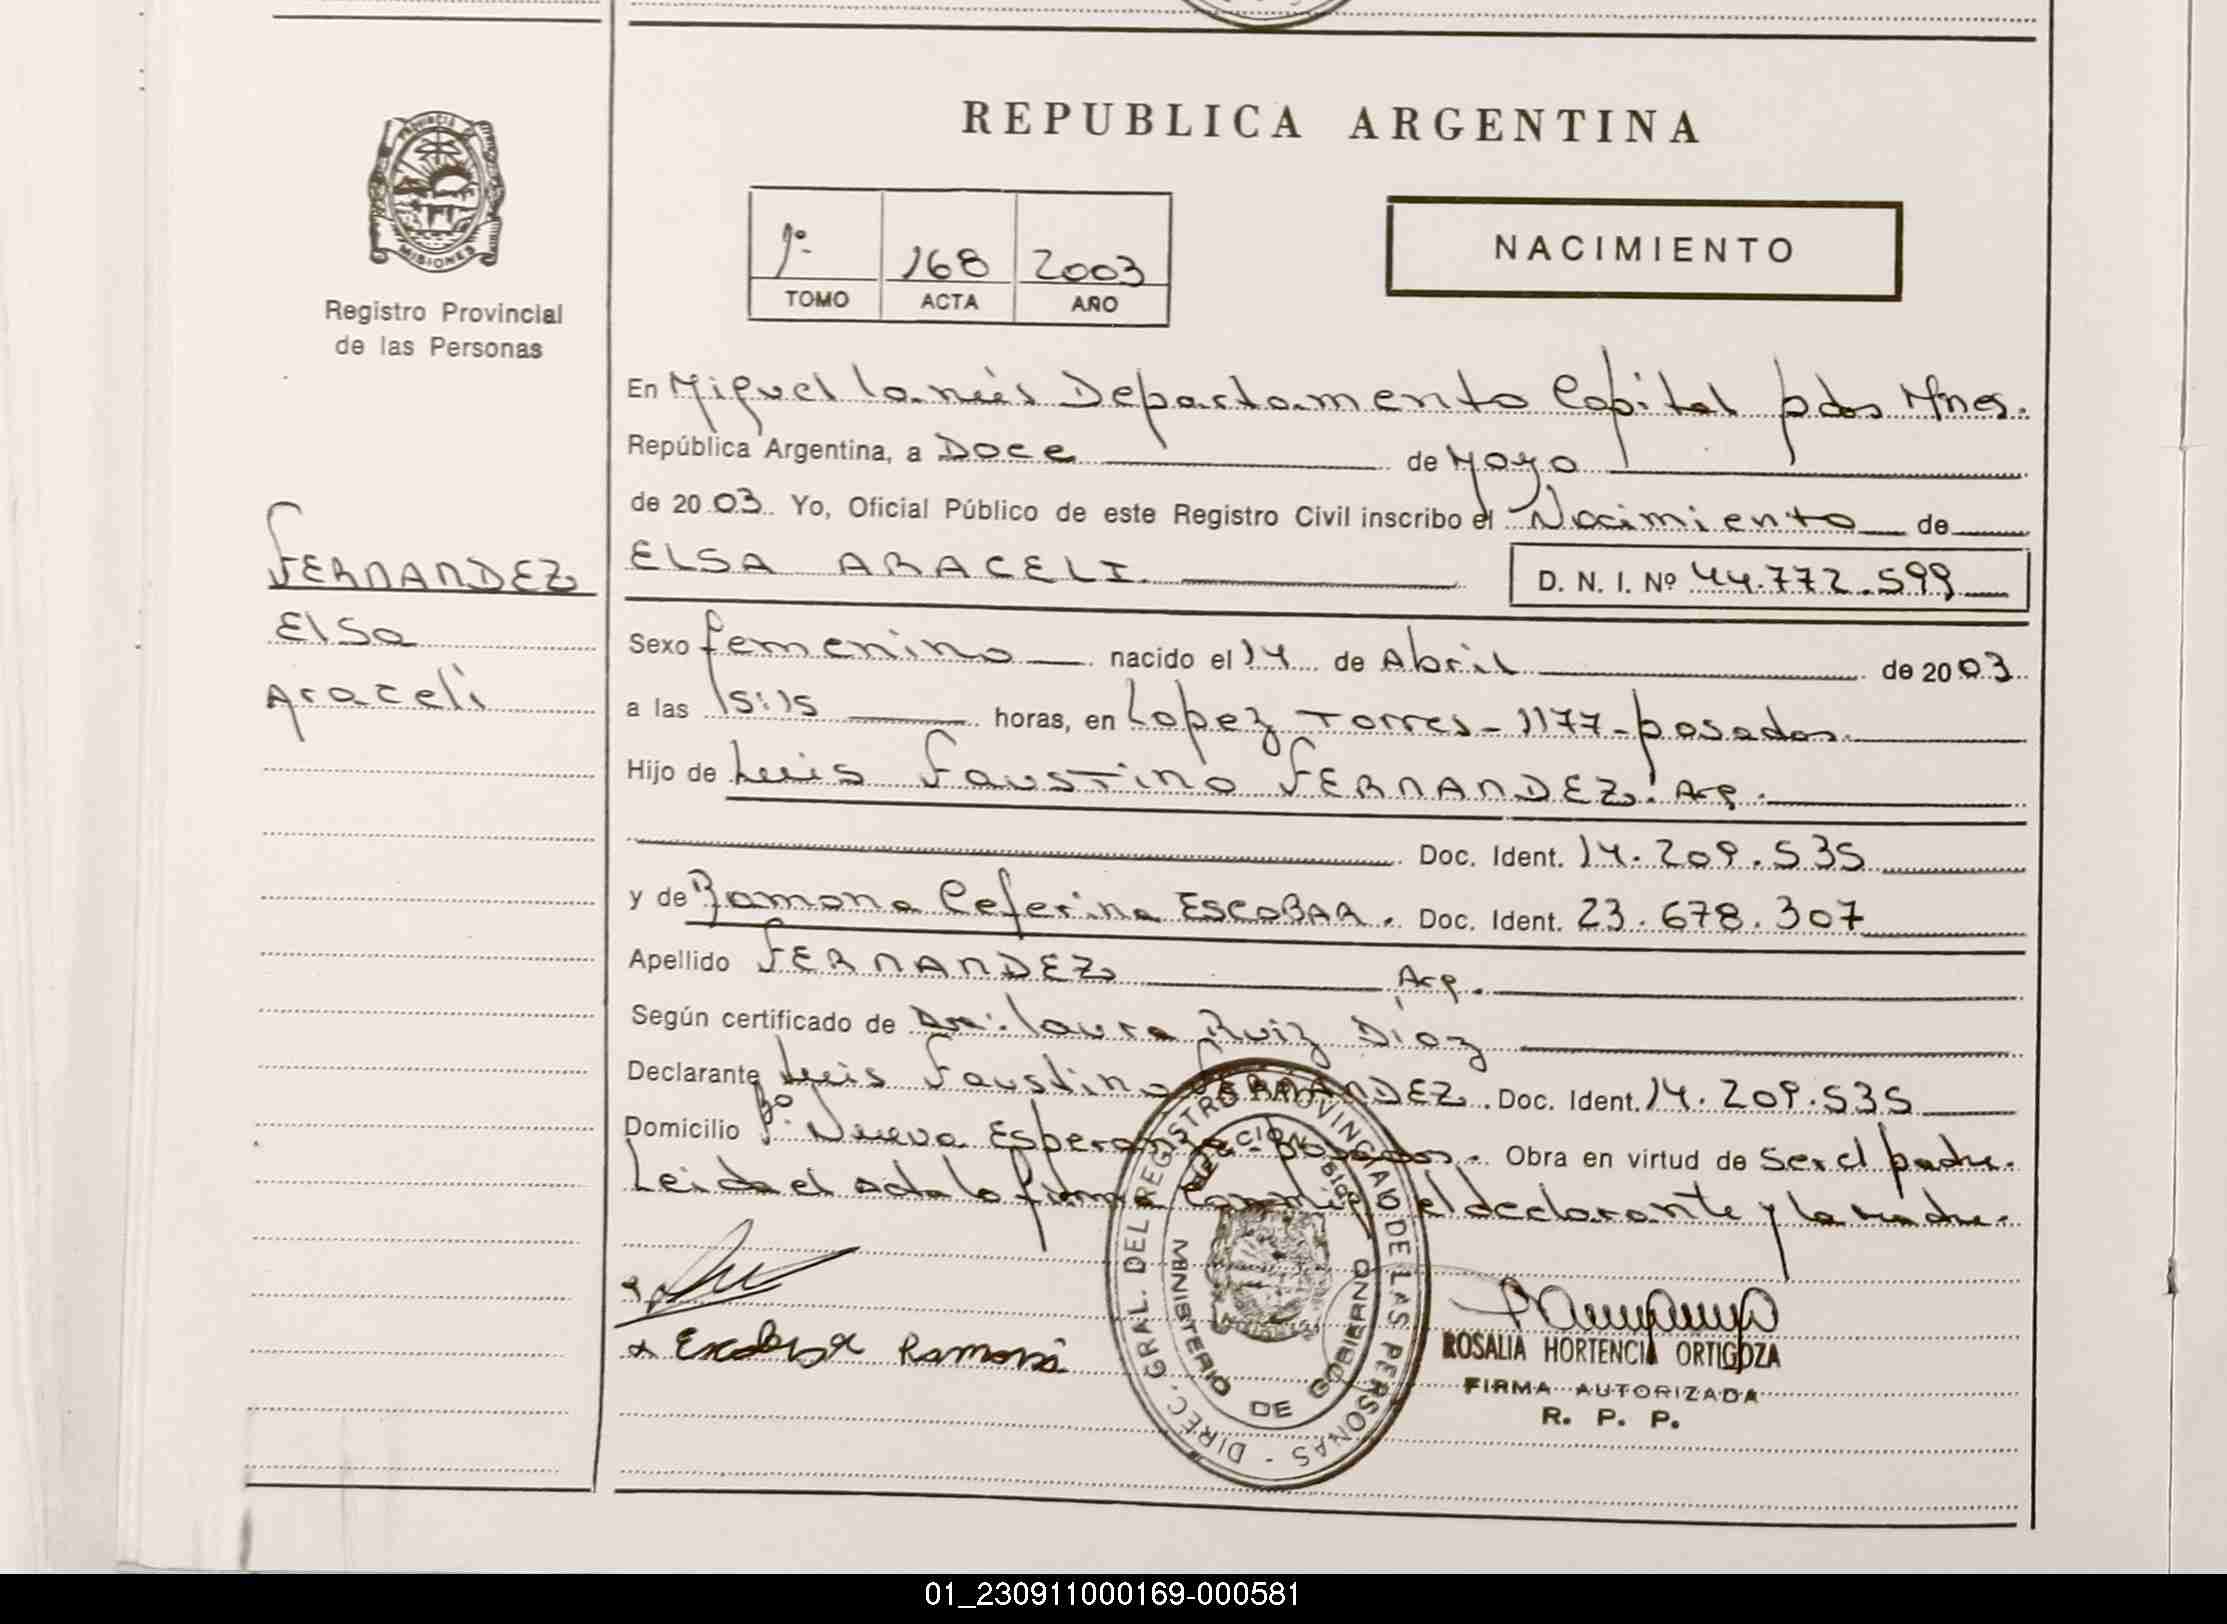 REPUBLICA ARGENTINA
PROVINCIA DE MISIONES
Registro Provincial
de las Personas
1º 168 2003
TOMO ACTA AÑO
NACIMIENTO
En Miguel Lanús Departamento Capital pdas Mnes.
República Argentina, a Doce de Mayo
de 2003. Yo, Oficial Público de este Registro Civil inscribo el Nacimiento de
ELSA ARACELI. D. N. I. Nº 44.772.599
FERNANDEZ
Elsa
Araceli
Sexo femenino nacido el 14 de Abril de 2003
a las 15:15 horas, en Lopez Torres - 1177 - posadas.
Hijo de Luis Faustino FERNANDEZ. Arg.
Doc. Ident. 14.209.535
y de Ramona Ceferina ESCOBAR. Doc. Ident. 23.678.307
Apellido FERNANDEZ Arg.
Según certificado de Dra. Laura Ruiz Díaz
Declarante Luis Faustino FERNANDEZ. Doc. Ident. 14.209.535
Domicilio Bº. Nueva Esperanza - posadas. Obra en virtud de Ser el padre.
Leida el acta la firma conmigo el declarante y la madre.
Escobar Ramona
DIREC. GRAL. DEL REGISTRO PROVINCIAL DE LAS PERSONAS
MINISTERIO DE GOBIERNO
ROSALIA HORTENCIA ORTIGOZA
FIRMA AUTORIZADA
R. P. P.
01_230911000169-000581